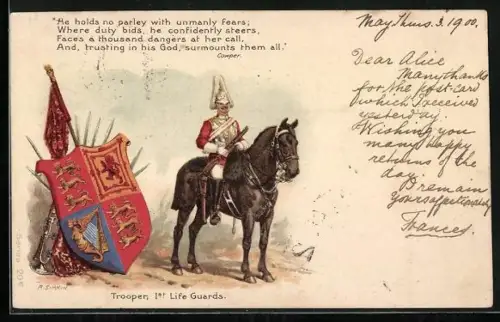 "He holds no parley with unmanly fears;
Where duty bids, he confidently steers,
Faces a thousand dangers at her call,
And, trusting in his God, surmounts them all."
Cowper.
May Thurs. 3. 1900.
Dear Alice
Many thanks
for the post-card
which I received
yesterday.
Wishing you
many happy
returns of the
day. I remain
Yours affectionately
Frances.
Series 204
R. SIMKIN
Trooper, 1st Life Guards.